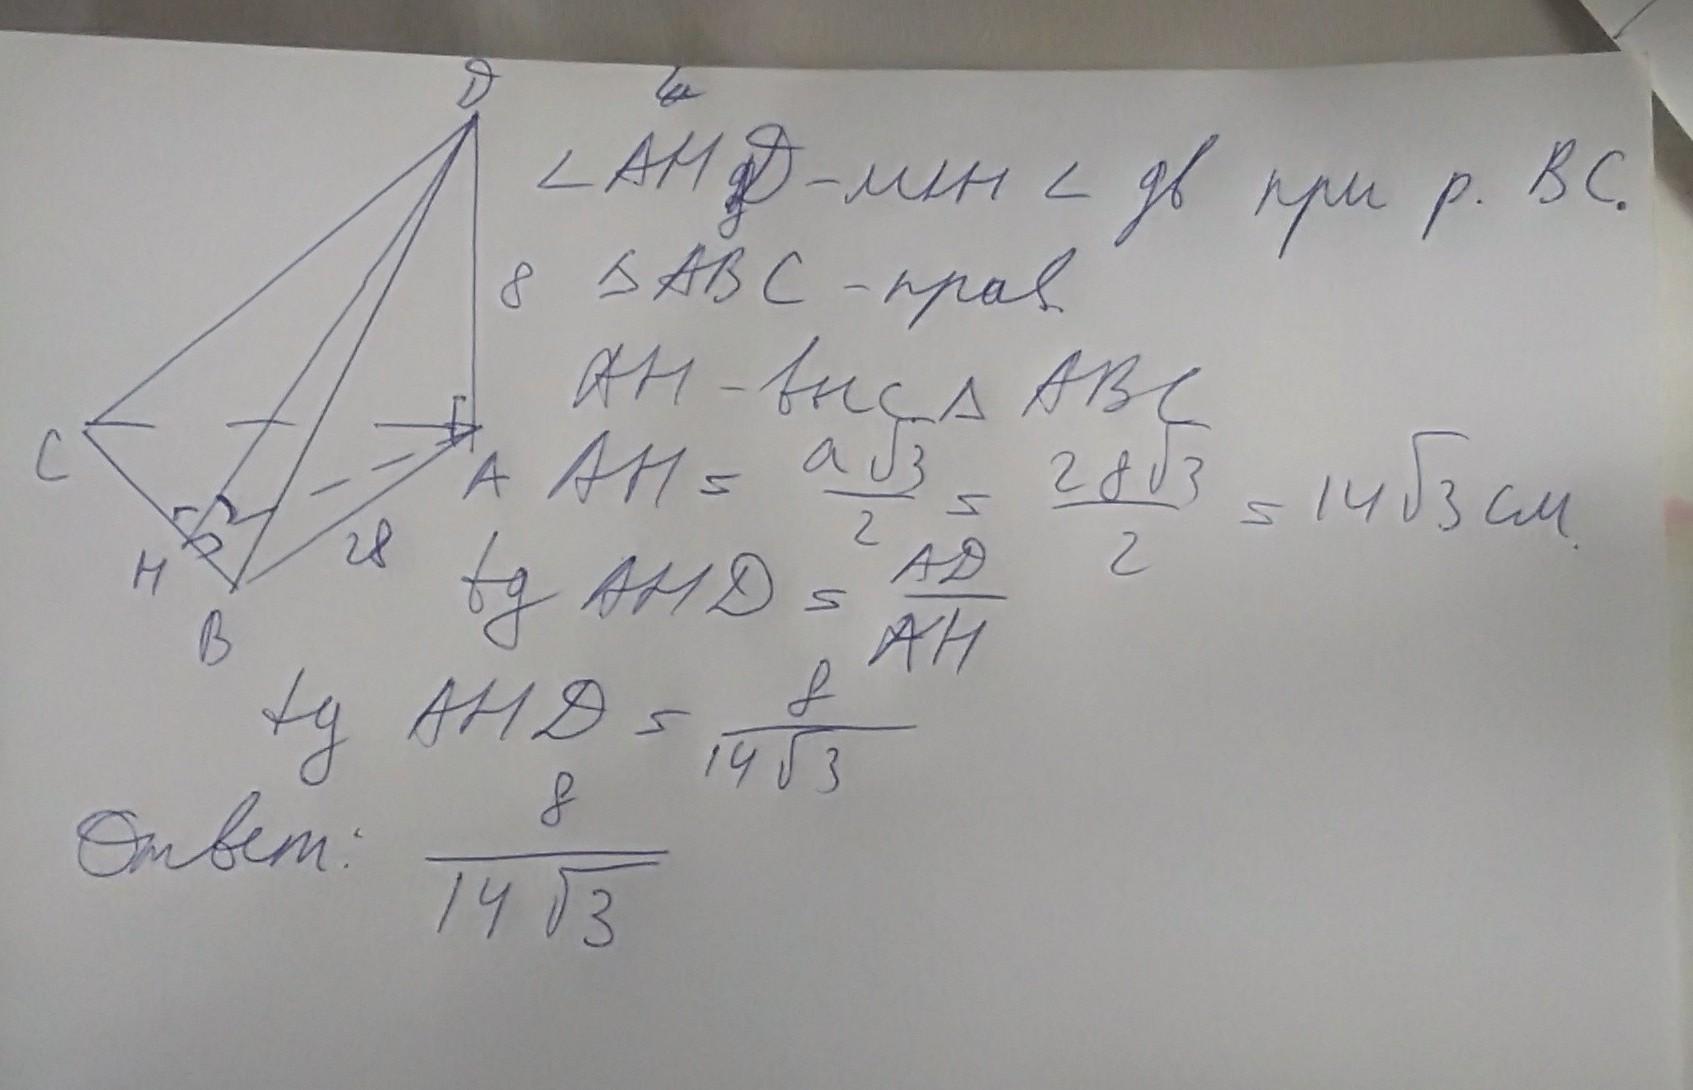 D
∠AHD - лин ∠ дв при р. BC.
8 ΔABC - прав
AH - выс Δ ABC
C A AH = a√3/2 = 28√3/2 = 14√3 см.
H 28 tg AHD = AD/AH
B
tg AHD = 8/14√3
Ответ: 8/14√3